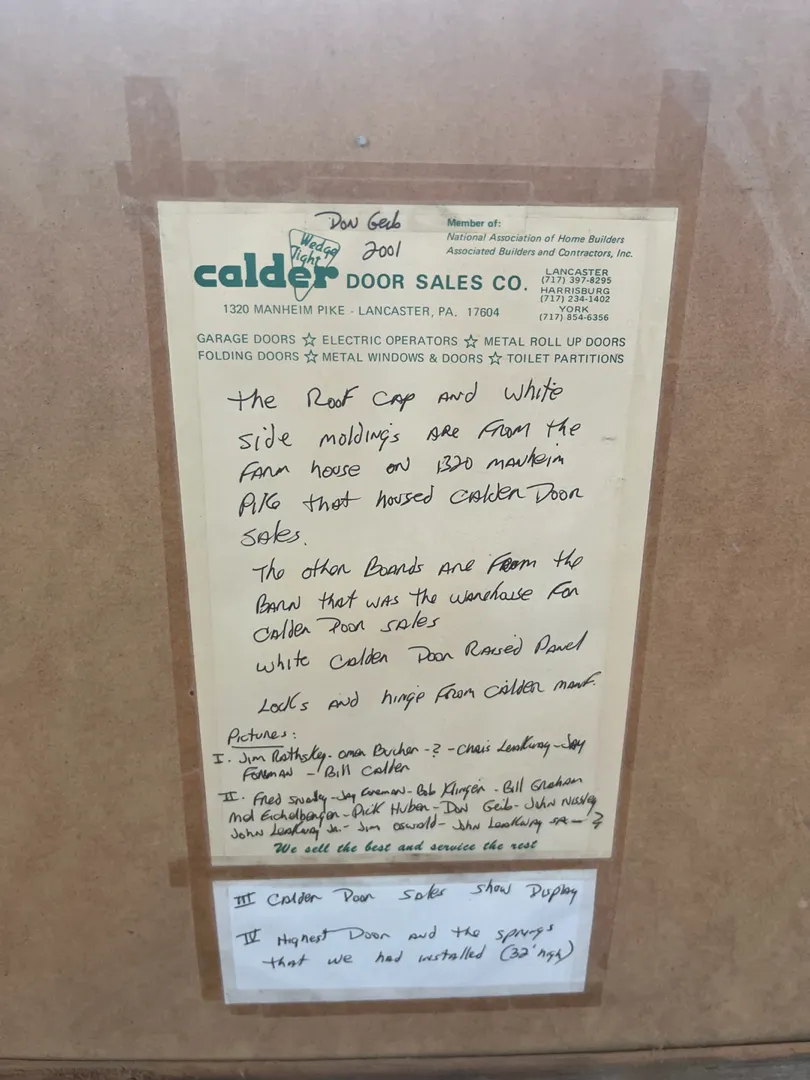 Don Geib
2001
Wedge
Tight
calder DOOR SALES CO.
Member of:
National Association of Home Builders
Associated Builders and Contractors, Inc.
LANCASTER
(717) 397-8295
HARRISBURG
(717) 234-1402
YORK
(717) 854-6356
1320 MANHEIM PIKE - LANCASTER, PA. 17604
GARAGE DOORS ☆ ELECTRIC OPERATORS ☆ METAL ROLL UP DOORS
FOLDING DOORS ☆ METAL WINDOWS & DOORS ☆ TOILET PARTITIONS
the Roof Cap and white
side moldings are from the
farm house on 1320 manheim
Pike that housed Calder Door
Sales.
The other Boards are from the
Barn that was the warehouse for
Calder Door sales
white Calder Door Raised Panel
Locks and hinge from Calder manf.
Pictures:
I. Jim Rothskey - omer Bucher - ? - Chris Leakway - Jay
Foreman - Bill Calder
II. Fred - Jay Foreman - Bob Klinger - Bill Graham
mel Eichelberger - Dick Huber - Don Geib - John Nissley
John Leakway Jr. - Jim oswald - John Leakway SR. - ?
We sell the best and service the rest
III Calder Door Sales show Display
IV Highest Door and the springs
that we had installed (32' high)